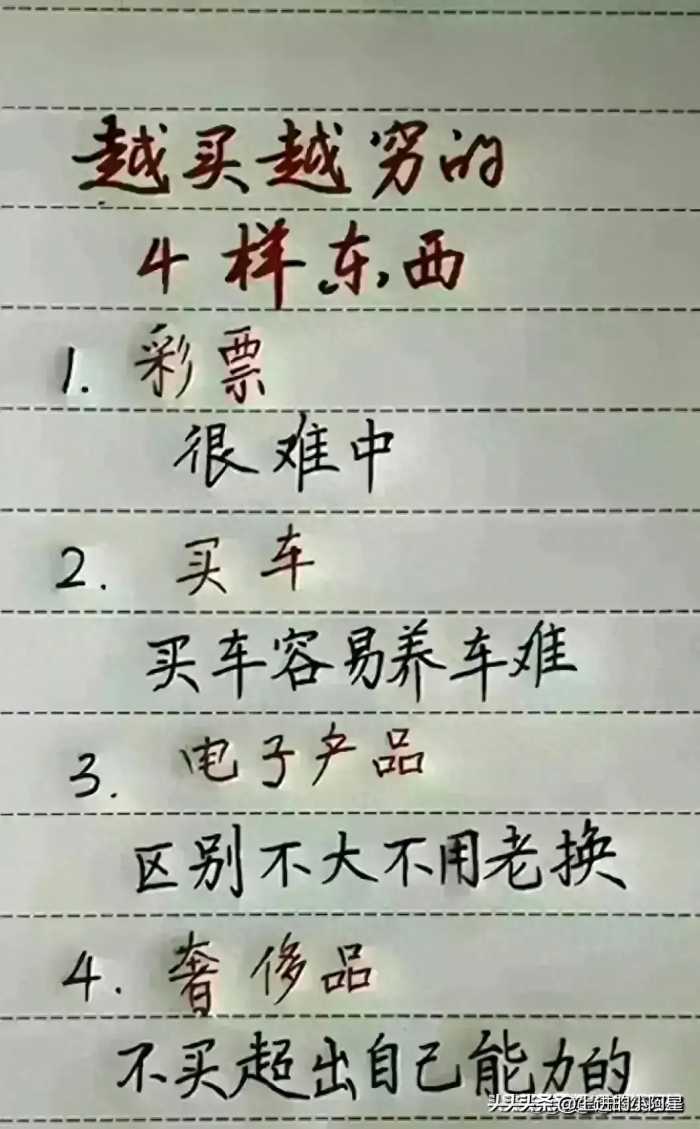 越买越穷的
4样东西
1. 彩票
很难中
2. 买车
买车容易养车难
3. 电子产品
区别不大不用老换
4. 奢侈品
不买超出自己能力的